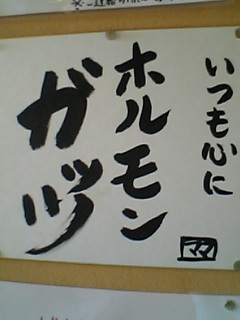 いつも心に
ホルモン
ガッツ
ママ